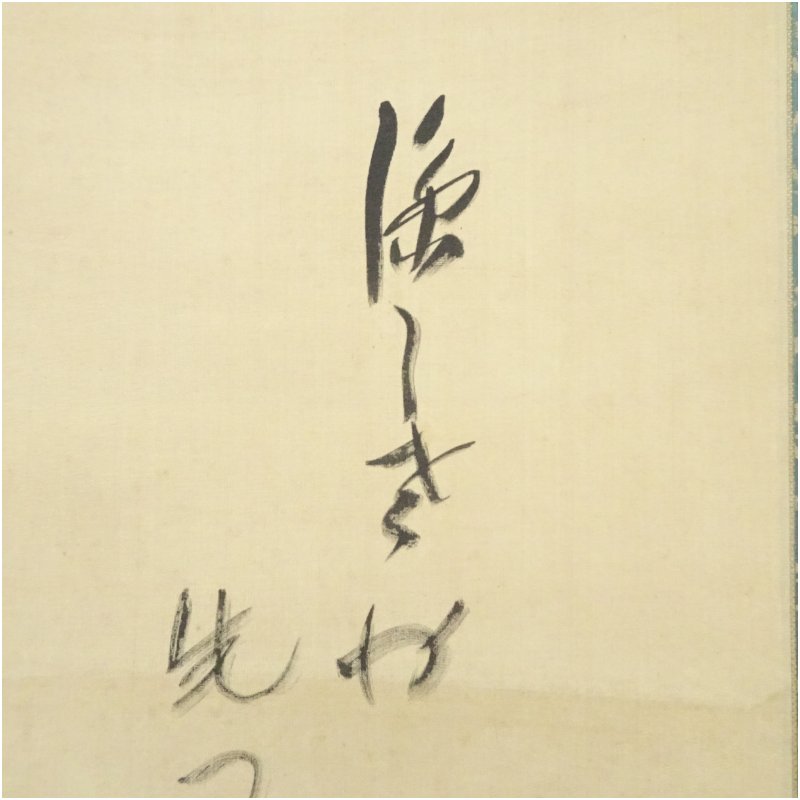 涼しさ
先つ